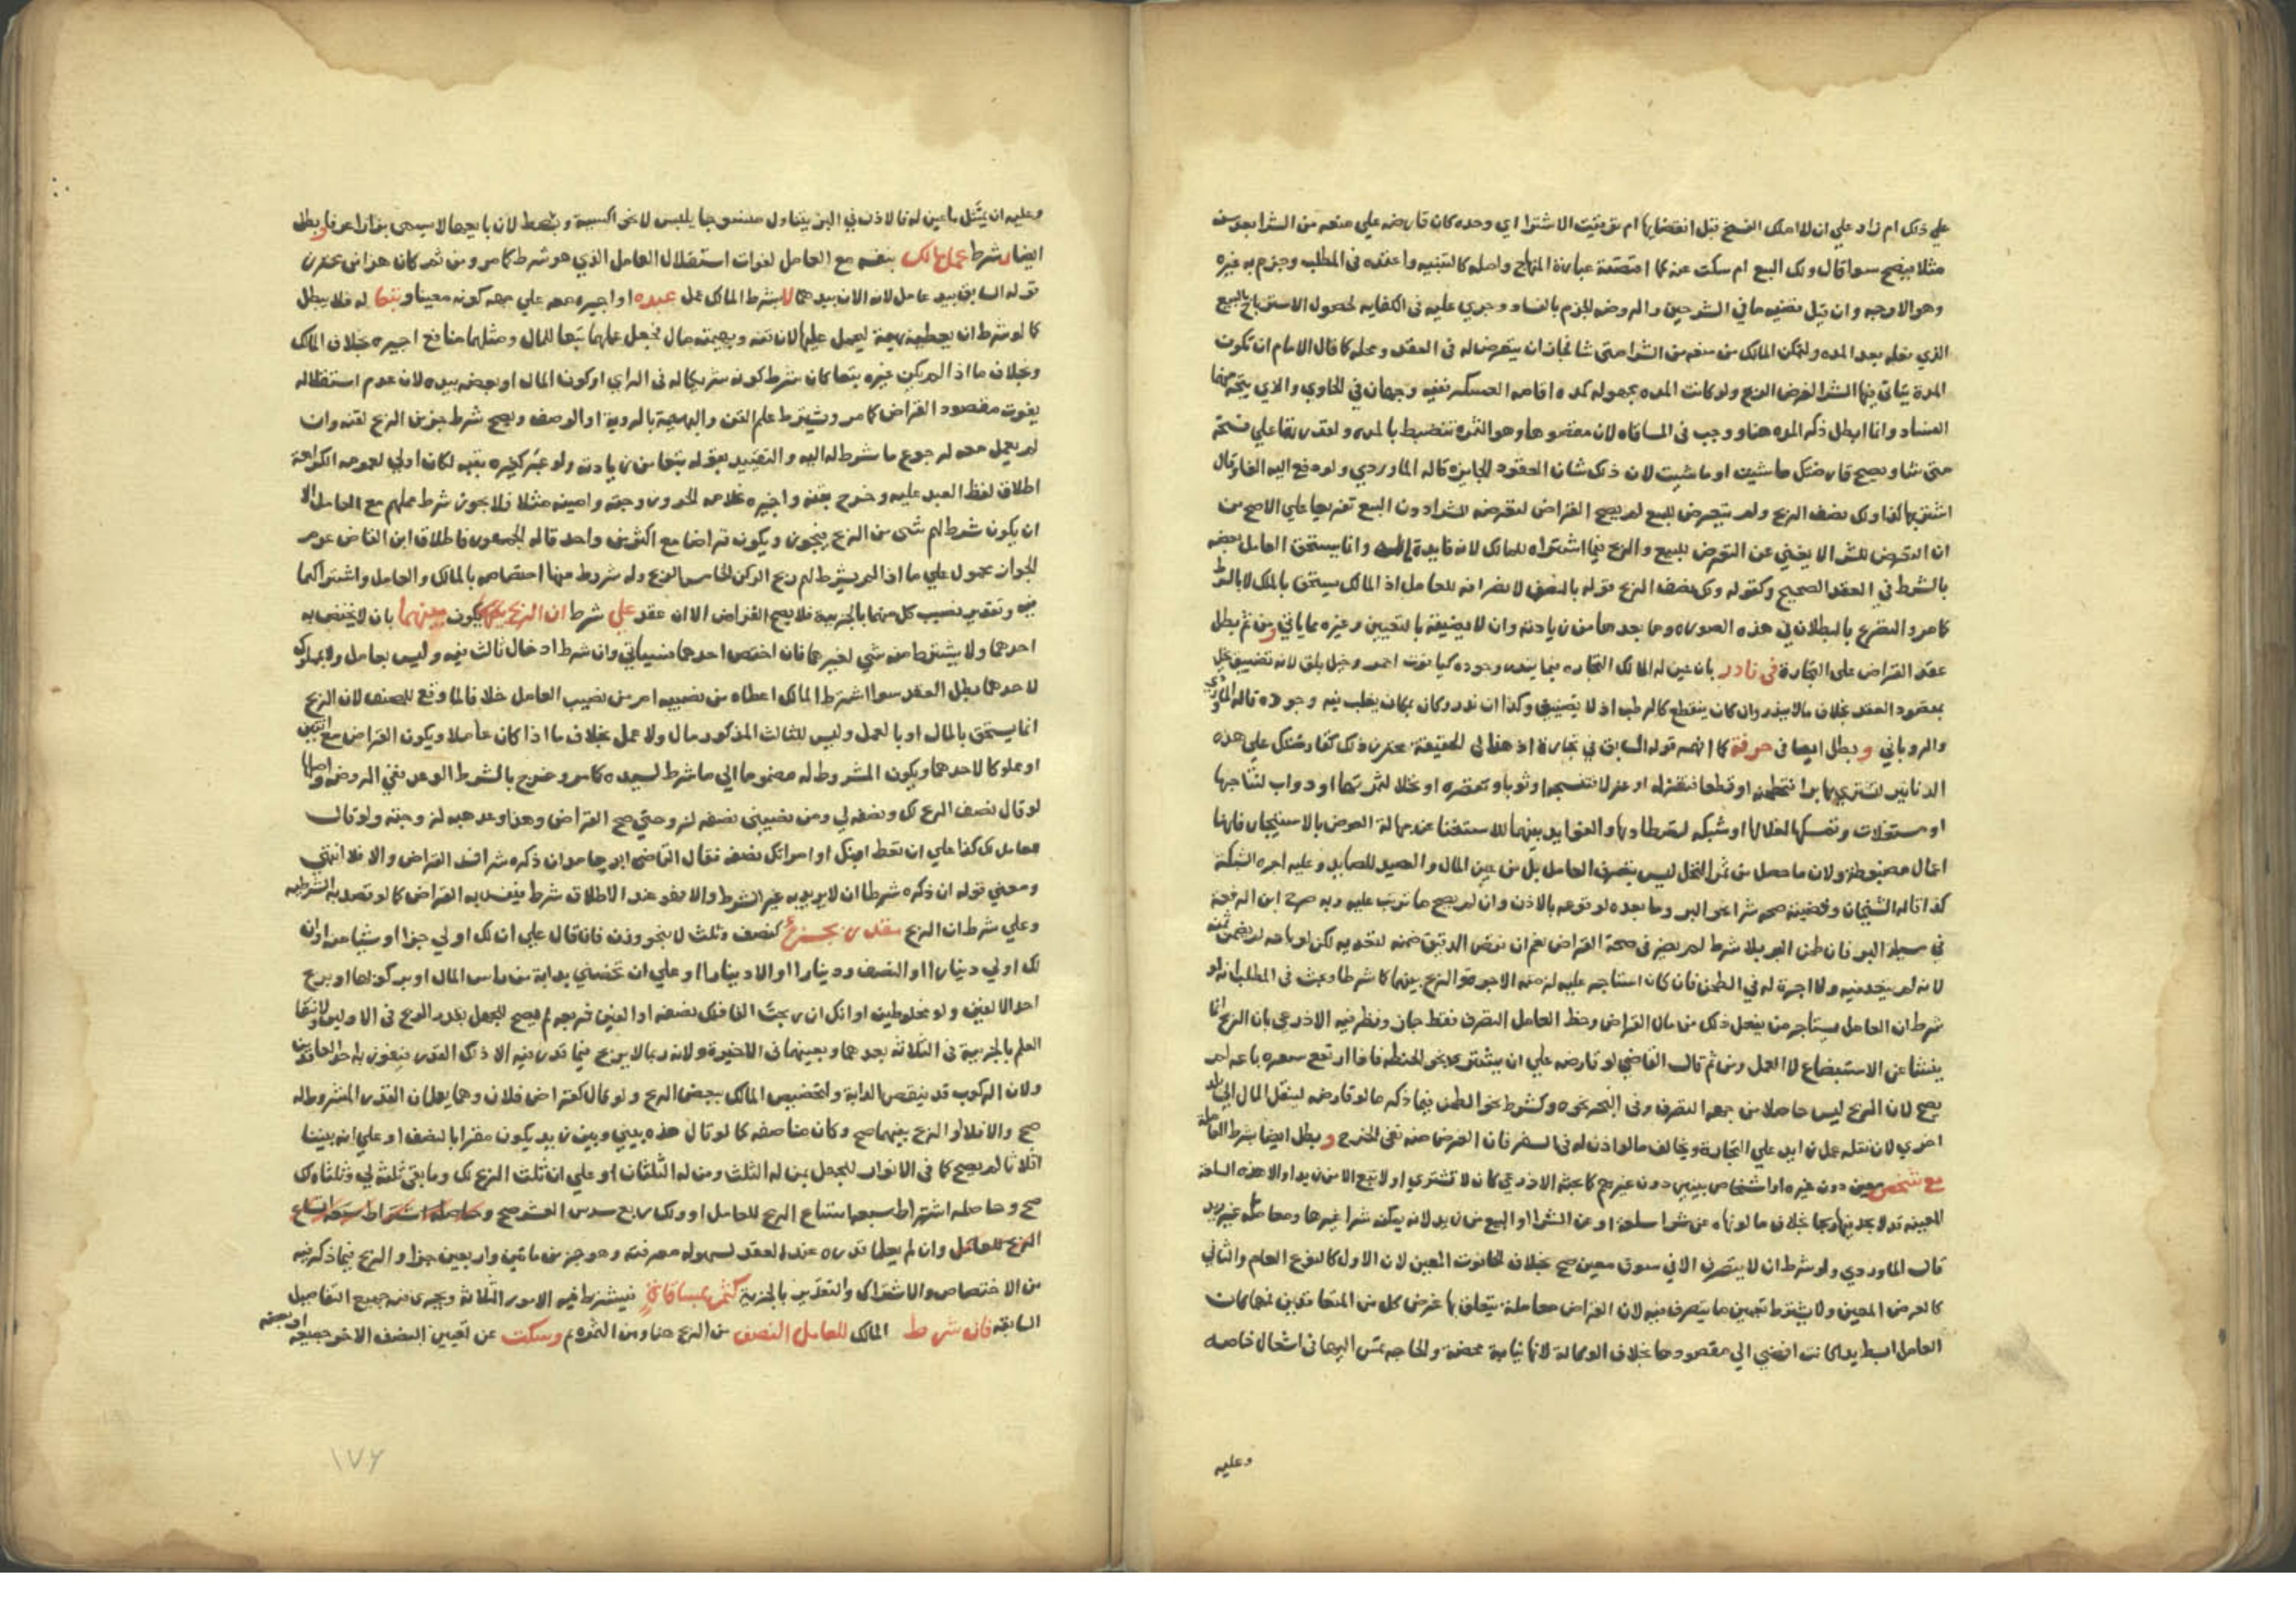 علي ذلك ام زاد علي ان لا املك الفسخ قبل انقضايها ام توقيت الاشترا اي وحده كان قارضه علي منعه من الشرا بعد سنه
مثلا فيصح سوا قال ولك البيع ام سكت عنه كما اقتضته عبارة المنهاج واصله كالتنبيه واعتمده في المطلب وجزم به غيره
وهو الاوجه وان قيل قضيه ما في الشرحين والروضه الجزم بالفساد وجري عليه في الكفايه لحصول الاسترباح بالبيع
الذي بعد المده ولتمكن المالك من منعه من الشرا متي شا فجاز ان يتعرض له في العقد ومحله كما قال الامام ان تكون
المدة يتاتي فيها الشرا لغرض الربح ولو كانت المده مجهوله كمدة اقامه العسكر ففيه وجهان في الحاوي والذي يتجه منهما
الفساد وانما ابطل ذكر المده هنا ووجب في المساقاه لان مقصودها وهو الثمره تنضبط بالمده ولقدرتهما علي فسخه
متي شا ويصح قارضتك ما شيت او ما شيت لان ذلك شان العقود الجايزه قاله الماوردي ولو دفع اليه الفا وقال
اشتر بها كذا ولك نصف الربح ولم يتعرض للبيع لم يصح القراض لتعرضه للشرا دون البيع تفريعا علي الاصح من
ان التعرض للشرا لا يغني عن التعرض للبيع والربح فيما اشتراه للمالك لانه فايدة وانما يستحق العامل بعضه
بالشرط في العقد الصحيح وكقوله ولك نصف الربح قوله بالنصف لانصرافه للعامل اذ المالك يستحق بالملك لا بالشرط
كما مر والتفرع بالبطلان في هذه الصوره وما بعدها من زيادته وان لا يضيقه بالتعيين وغيره مما ياتي ومن ثم بطل
عقد القراض علي التجارة في نادر بان عين له المالك التجاره فيما يندر وجوده كياقوت احمر وخيل بلق لانه تضييق يخل
بمقصود العقد بخلاف ما لا يندر وان كان ينقطع كالرطب اذ لا تضييق وكذا ان ندر وكان بمكان يغلب فيه وجوده قاله الماوردي
والروياني و بطل ايضا في حرفة كما افهمه قوله السابق في تجارة اذ هذا في الحقيقة محترز ذلك كقارضتك علي هذه
الدنانير لتشتري بها برا فتطحنه او قطنا فتغزله او غزلا فتنسجه او ثوبا وتقصره او نخلا لثمرتها او دواب لنتاجها
او مستغلات وتمسكها لغلالها او شبكه لتصطاد بها والفوايد بينهما للاستغنا عن جهالة العوض بالاستيجار فانها
اعمال مضبوطة ولان ما حصل من ثمر النخل ليس بتصرف العامل بل من عين المال والصيد للصايد وعليه اجره الشبكة
كذا قاله الشيخان وقضيته صحه شرا نحو البر وما بعده لوقوعه بالاذن وان لم يصح ما ترتب عليه وبه صرح ابن الرفعة
في مسيلة البر فان طحن البر بلا شرط لم يضر في صحة القراض نعم ان نقص الدقيق ضمنه لتعديه لكن لو باعه لم يضمن ثمنه
لانه لم يتعد فيه ولا اجرة له في الطحن فان كان استاجر عليه لزمته الاجرة والربح بينهما كما شرطا وبحث في المطلب انه لو
شرط ان العامل يستاجر من يفعل ذلك من مال القراض وحظ العامل التصرف فقط جاز ونظر فيه الاذرعي بان الربح انما
ينشا عن الاستبضاع لا العمل ومن ثم قال القاضي لو قارضه علي ان يشتري نحو الحنطه فاذا ارتفع سعره باعه لم
يصح لان الربح ليس حاصلا من جهه التصرف وفي البحر نحوه وكشرط نحو الطحن فيما ذكر ما لو قارضه لينقل المال الي بلد
اخري لان نقله عمل زايد علي التجارة ويخالف ما لو اذن له في السفر فان الغرض منه نفي الحرج و بطل ايضا شرط المعامله
مع شخص معين دون غيره او اشخاص معينين دون غيرهم كما بحثه الاذرعي كان لا تشتري او لا تبيع الا من زيد او الا هذه السلعة
المعينه قد لا يجد فيها ربحا بخلاف ما لو نهاه عن شرا سلعة او عن الشرا او البيع من زيد لانه يمكنه شرا غيرها ومعاملة غير زيد
قال الماوردي ولو شرط ان لا يتصرف الا في سوق معين صح بخلاف الحانوت المعين لان الاول كالنوع العام والثاني
كالعرض المعين ولا يشترط تعيين ما يتصرف فيه لان القراض معاملة يتعلق بها غرض كل من المتعاقدين فمهما كانت
العامل ابسط يدا كانت افضي الي مقصودها بخلاف الوكالة لانها نيابة محضة والحاجه تمس اليها في اشغال خاصه
وعليه
وعليه ان يمتثل ما عين له فالاذن في البز يتناول منسوجا يلبس لا نحو اكسية وبسط لان بايعها لا يسمي بزازا عرفا وبطل
ايضا شرط عمل مالك بنفسه مع العامل لفوات استقلال العامل الذي هو شرط كما مر ومن ثم كان هذا من محترز
قوله السابق بيد عامل لانه الان بيدهما لا بشرط المالك عمل عبده او اجيره معه علي جهه كونه معينا وتبعا له فلا يبطل
كما لو شرط ان يعطيه بهيمة ليحمل عليها لان قنه وبهيمته مال فجعل عملهما تبعا للمال ومثلهما منافع اجيره بخلاف المالك
وبخلاف ما اذا لم يكن غيره تبعا كان شرط كونه شريكا له في الراي او كون المال او بعضه بيده لان عدم استقلاله
يفوت مقصود القراض كما مر ويشترط علم القن والبهيمة بالروية او الوصف ويصح شرط جز من الربح لقنه وان
لم يعمل معه لرجوع ما شرط له اليه والتقييد بقوله تبعا من زيادته ولو عبر كغيره بقنه لكان اولي لعمومه الكراهة
اطلاق لفظ العبد عليه وخرج بقنه واجيره غلامه الحر وزوجته وامينه مثلا فلا يجوز شرط عملهم مع العامل الا
ان يكون شرط لهم شي من الربح فيجوز ويكون قراضا مع اكثر من واحد قاله الجمهور فاطلاق ابن القاص عدم
الجواز محمول علي ما اذا لم يشرط لهم ربح الركن الخامس الربح وله شروط منها اختصاصه بالمالك والعامل واشتراكهما
فيه وتقدير نصيب كل منهما بالجزيية فلا يصح القراض الا ان عقد علي شرط ان الربح يكون بينهما بان لا يختص به
احدهما ولا يشترط منه شي لغيرهما فان اختص احدهما فسياتي وان شرط ادخال ثالث فيه وليس بعامل ولا مملوك
لاحدهما بطل العقد سوا اشترط المالك اعطاه من نصيبه ام من نصيب العامل خلافا لما وقع للمصنف لان الربح
انما يستحق بالمال او بالعمل وليس للثالث المذكور مال ولا عمل بخلاف ما اذا كان عاملا ويكون القراض مع اثنين
او مملوكا لاحدهما ويكون المشروط له مضموما الي ما شرط لسيده كما مر وخرج بالشرط الوعد ففي الروضه واصلها
لو قال نصف الربح لك ونصفه لي ومن نصيبي نصفه لزوجتي صح القراض وهذا وعد هبه لزوجته ولو قال
للعامل لك كذا علي ان تعطي ابنك او امراتك نصفه فقال القاضي ابو حامد ان ذكره شرطا فسد القراض والا فلا انتهي
ومعني قوله ان ذكره شرطا ان لا يريد به غير الشرط والا فهو عند الاطلاق شرط يفسد به القراض كما لو قصد به الشرطيه
وعلي شرط ان الربح مقدر بجزء كنصف وثلث لا بنحو وزن فان قال علي ان لك او لي جزا او شيا منه او ان
لك او لي دينارا او النصف ودينارا او الا دينارا او علي ان تخصني بدابة من راس المال او بركوبها او بربح
احد الالفين ولو مخلوطين او انك ان ربحت الفا فلك نصفه او الفين فربعه لم يصح للجهل بقدر الربح في الاوليين ولانتفا
العلم بالجزيية في الثلاثة بعدهما وبعينهما في الاخيرة ولانه ربما لا يربح فيما قدر فيه الا ذلك القدر فيفوز به احد العاقدين
ولان الركوب قد ينقص الدابة ولتخصيص المالك ببعض الربح ولو قال كقراض فلان وهما يعلمان القدر المشروط له
صح والا فلا او الربح بيننا صح وكان مناصفه كما لو قال هذه بيني وبين زيد يكون مقرا بالنصف او علي انه بيننا
اثلاثا لم يصح كما في الانوار للجهل بمن له الثلث ومن له الثلثان او علي ان ثلث الربح لك وما بقي ثلثه لي وثلثاه لك
صح وحاصله اشتراط سبعه اتساع الربح للعامل او ولك ربع سدس العشر صح وحاصله اشتراط سبعه اتساع
الربح للعامل وان لم يعلما قدره عند العقد لسهوله معرفته وهو جز من مايتين واربعين جزا والربح فيما ذكر فيه
من الاختصاص والاشتراك والتقدير بالجزيية كثمر بمساقاة فيشترط فيه الامور الثلاثة ويجري فيه جميع التفاصيل
السابقه فان شرط المالك للعامل النصف من الربح هنا ومن الثمره ثم وسكت عن تعيين النصف الاخر جميعه او بعضه
١٧٦